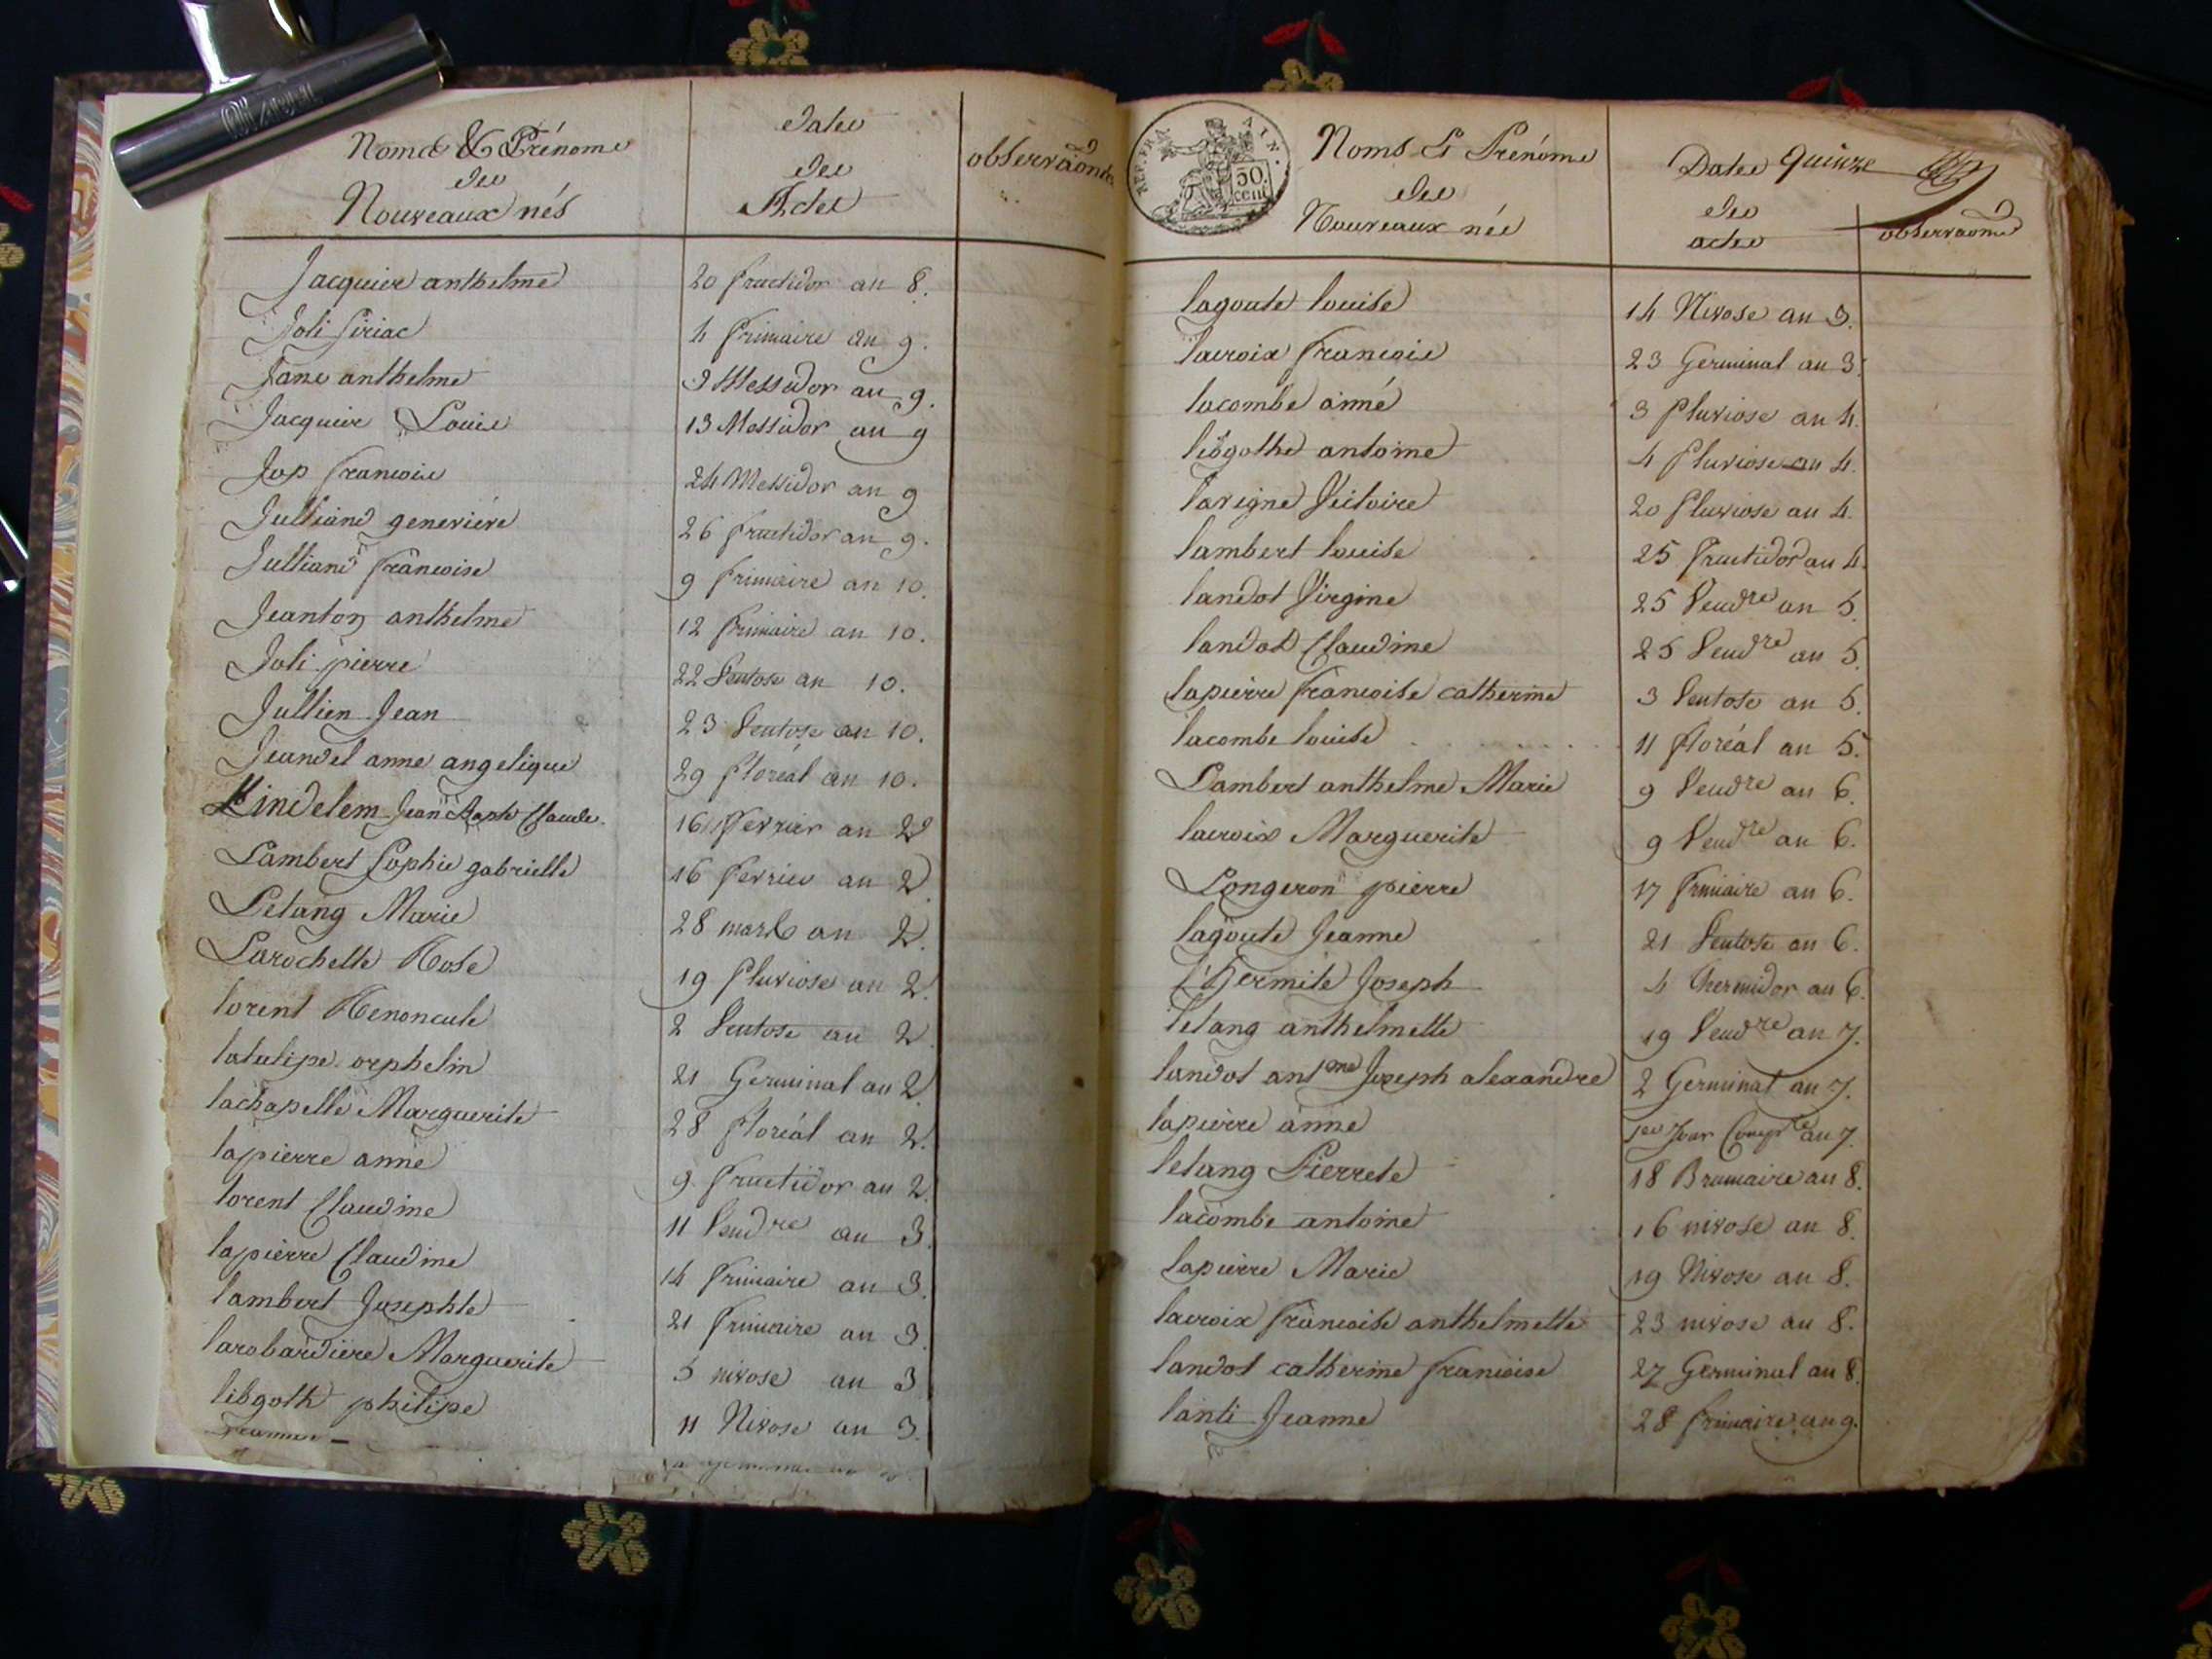 Noms & Prénoms
des
Nouveaux nés
Dates
des
Actes
observaons
Jacquier anthelme 20 fructidor an 8.
Joli Siriac 4 frimaire an 9.
Jane anthelme 9 Messidor an 9.
Jacquier Louis 13 Messidor an 9
Jop francois 24 Messidor an 9
Julliand genevieve 26 fructidor an 9.
Julliand francoise 9 frimaire an 10.
Jeanton anthelme 12 frimaire an 10.
Joli pierre 22 Ventose an 10.
Jullien Jean 23 Ventose an 10.
Jeandel anne angelique 29 floréal an 10.
Kindelem Jean Bapte Claude. 16 fevrier an 2
Lambert Sophie gabrielle 16 fevrier an 2
Letang Marie 28 mars an 2.
Larochelle Rose 19 Pluviose an 2.
lorent Renoncule 2 Ventose an 2
latulipe orphelin 21 Germinal an 2
lachapelle Marguerite 28 floréal an 2.
lapierre anne 9 fructidor an 2.
lorent Claudine 11 Vendre an 3.
lapierre Claudine 14 frimaire an 3.
lambert Josephte 21 frimaire an 3.
larobardiere Marguerite 5 nivose an 3
libgoth philipe 11 Nivose an 3.
REP. FRA. AIN.
50.
cent
Noms & Prénoms
des
Nouveaux nés
Dates
des
actes
quinze
observaons
lagoute louise 14 Nivose an 3.
lacroix francois 23 Germinal an 3.
lacombe aimé 3 pluviose an 4.
libgothe antoine 4 Pluviose an 4.
lavigne Victoire 20 Pluviose an 4.
lambert louise 25 fructidor an 4.
landot Virgine 25 Vendre an 5.
landot Claudine 25 Vendre an 5.
lapierre francoise catherine 3 Ventose an 5.
lacombe louise 11 floréal an 5.
Lambert anthelme Marie 9 Vendre an 6.
lacroix Marguerite 9 Vendre an 6.
Longeron pierre 17 frimaire an 6.
lagoute Jeanne 21 Ventose an 6.
l'hermite Joseph 4 thermidor an 6.
letang anthelmette 19 Vendre an 7.
landot antme Joseph alexandre 2 Germinal an 7.
lapierre anne 1er Jour Compre an 7.
letang Pierrete 18 Brumaire an 8.
lacombe antoine 16 nivose an 8.
lapierre Marie 19 Nivose an 8.
lacroix francoise anthelmette 23 nivose an 8.
landot catherine francoise 27 Germinal an 8.
lanti Jeanne 28 frimaire an 9.